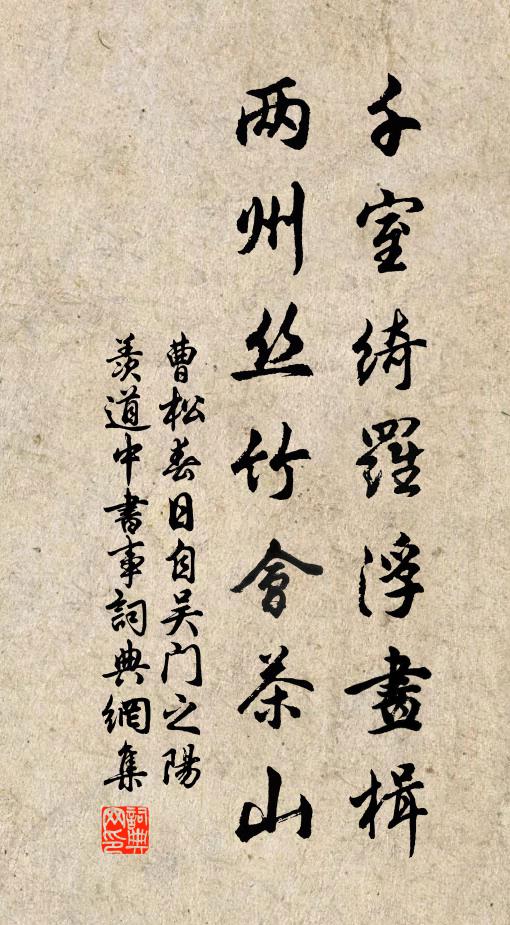 千室綺羅浮畫楫
两州丝竹會茶山
曹松春日自吴门之陽
羨道中書事詞典網集
詞典
网印